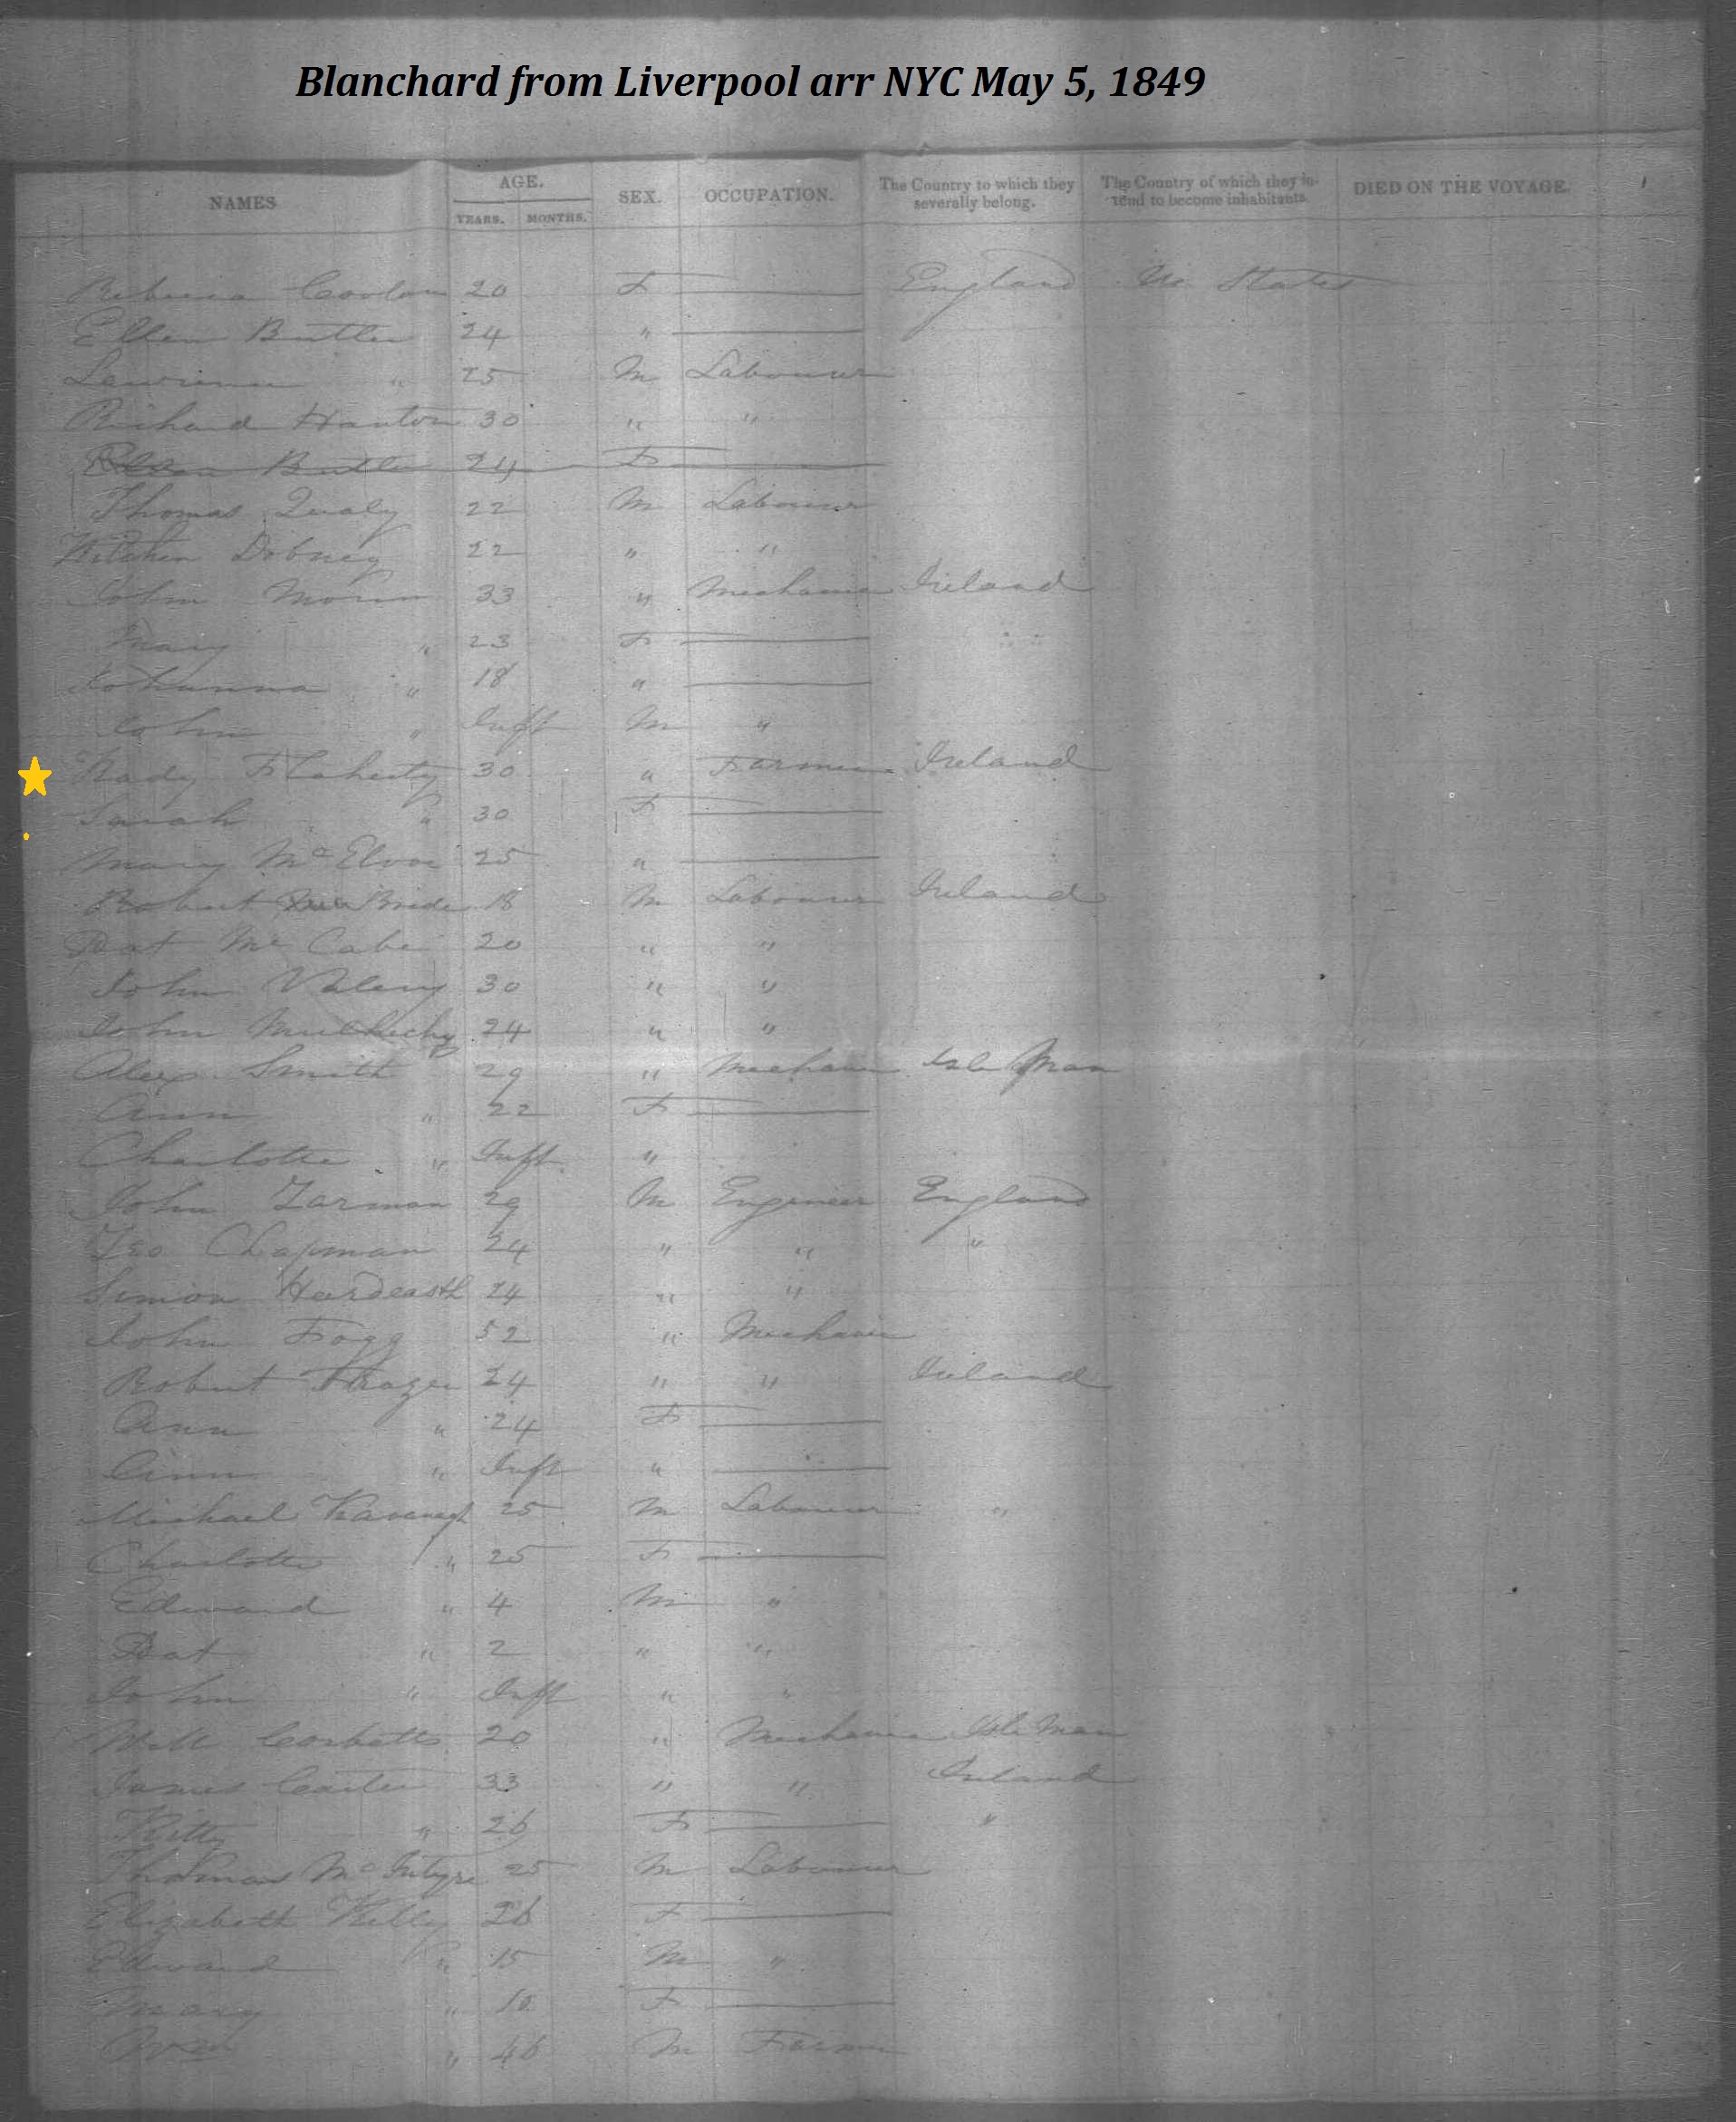 Blanchard from Liverpool arr NYC May 5, 1849
NAMES AGE. YEARS. MONTHS. SEX. OCCUPATION. The Country to which they severally belong. The Country of which they intend to become inhabitants. DIED ON THE VOYAGE.
20 F England U. States
Ellen Butler 24 "
Lawrence " 25 M Labourer
Richard Hanton 30 " "
Ellen Butler 24 F
Thomas 22 M Labourer
Dobney 22 " "
John 33 " Mechanic Ireland
Mary " 23 F
Johanna " 18 "
John " Inft M "
Flaherty 30 " Farmer Ireland
Sarah " 30 F
Mary 25 "
Robert Bride 18 M Labourer Ireland
Pat Mc Cabe 20 " "
John 30 " "
John 24 " "
Alex Smith 29 " Mechanic Isle Man
Ann " 22 F
Charlotte " Inft "
John 29 M Engineer England
Geo Chapman 24 " " "
Simon Hardcastle 24 " "
John Fogg 52 " Mechanic
Robert 24 " " Ireland
Ann " 24 F
Ann " Inft "
Michael Kavanagh 25 M Labourer "
Charlotte " 25 F
Edward " 4 M "
Pat " 2 " "
John " Inft " "
Corbett 20 " Mechanic Isle Man
James Carter 33 " " Ireland
Kitty " 26 F "
Thomas Mc Intyre 25 M Labourer
Elizabeth Kelly 26 F
Edward " 15 M "
Mary " F
Wm " 46 M Farmer